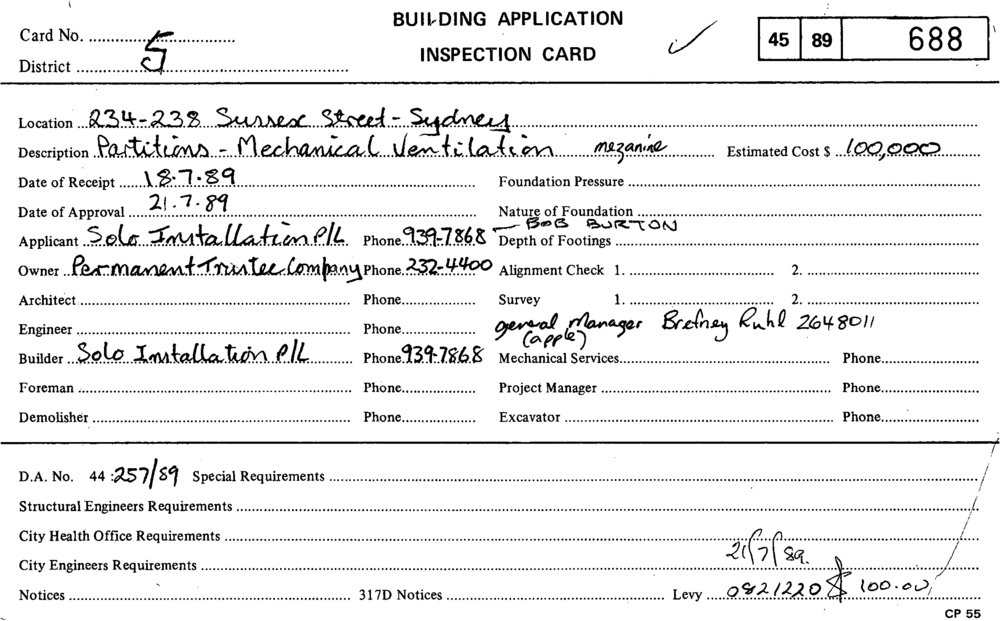 BUILDING APPLICATION
INSPECTION CARD
Card No. 5
District
45 89 688
Location 234-238 Sussex Street - Sydney
Description Partitions - Mechanical Ventilation mezanine Estimated Cost $ 100,000
Date of Receipt 18.7.89 Foundation Pressure
Date of Approval 21.7.89 Nature of Foundation
BOB BURTON
Applicant Solo Installation P/L Phone 939-7868 Depth of Footings
Owner Permanent Trustee Company Phone 232-4400 Alignment Check 1. 2.
Architect Phone Survey 1. 2.
general Manager Bretney Ruhl 2648011
(apple)
Engineer Phone
Builder Solo Installation P/L Phone 939-7868 Mechanical Services Phone
Foreman Phone Project Manager Phone
Demolisher Phone Excavator Phone
D.A. No. 44 : 257/89 Special Requirements
Structural Engineers Requirements
City Health Office Requirements
21/7/89.
City Engineers Requirements
Notices 317D Notices Levy 0821220 $ 100.00
CP 55